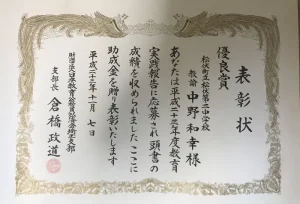 表彰状
優良賞
松伏町立松伏第二中学校
教諭 中野和幸様
あなたは平成二十三年度教育
実践報告に応募され頭書の
成績を収められましたここに
助成金を贈り表彰いたします
平成二十三年十一月七日
財団法人日本教育公務員弘済会埼玉支部
支部長 倉橋政道